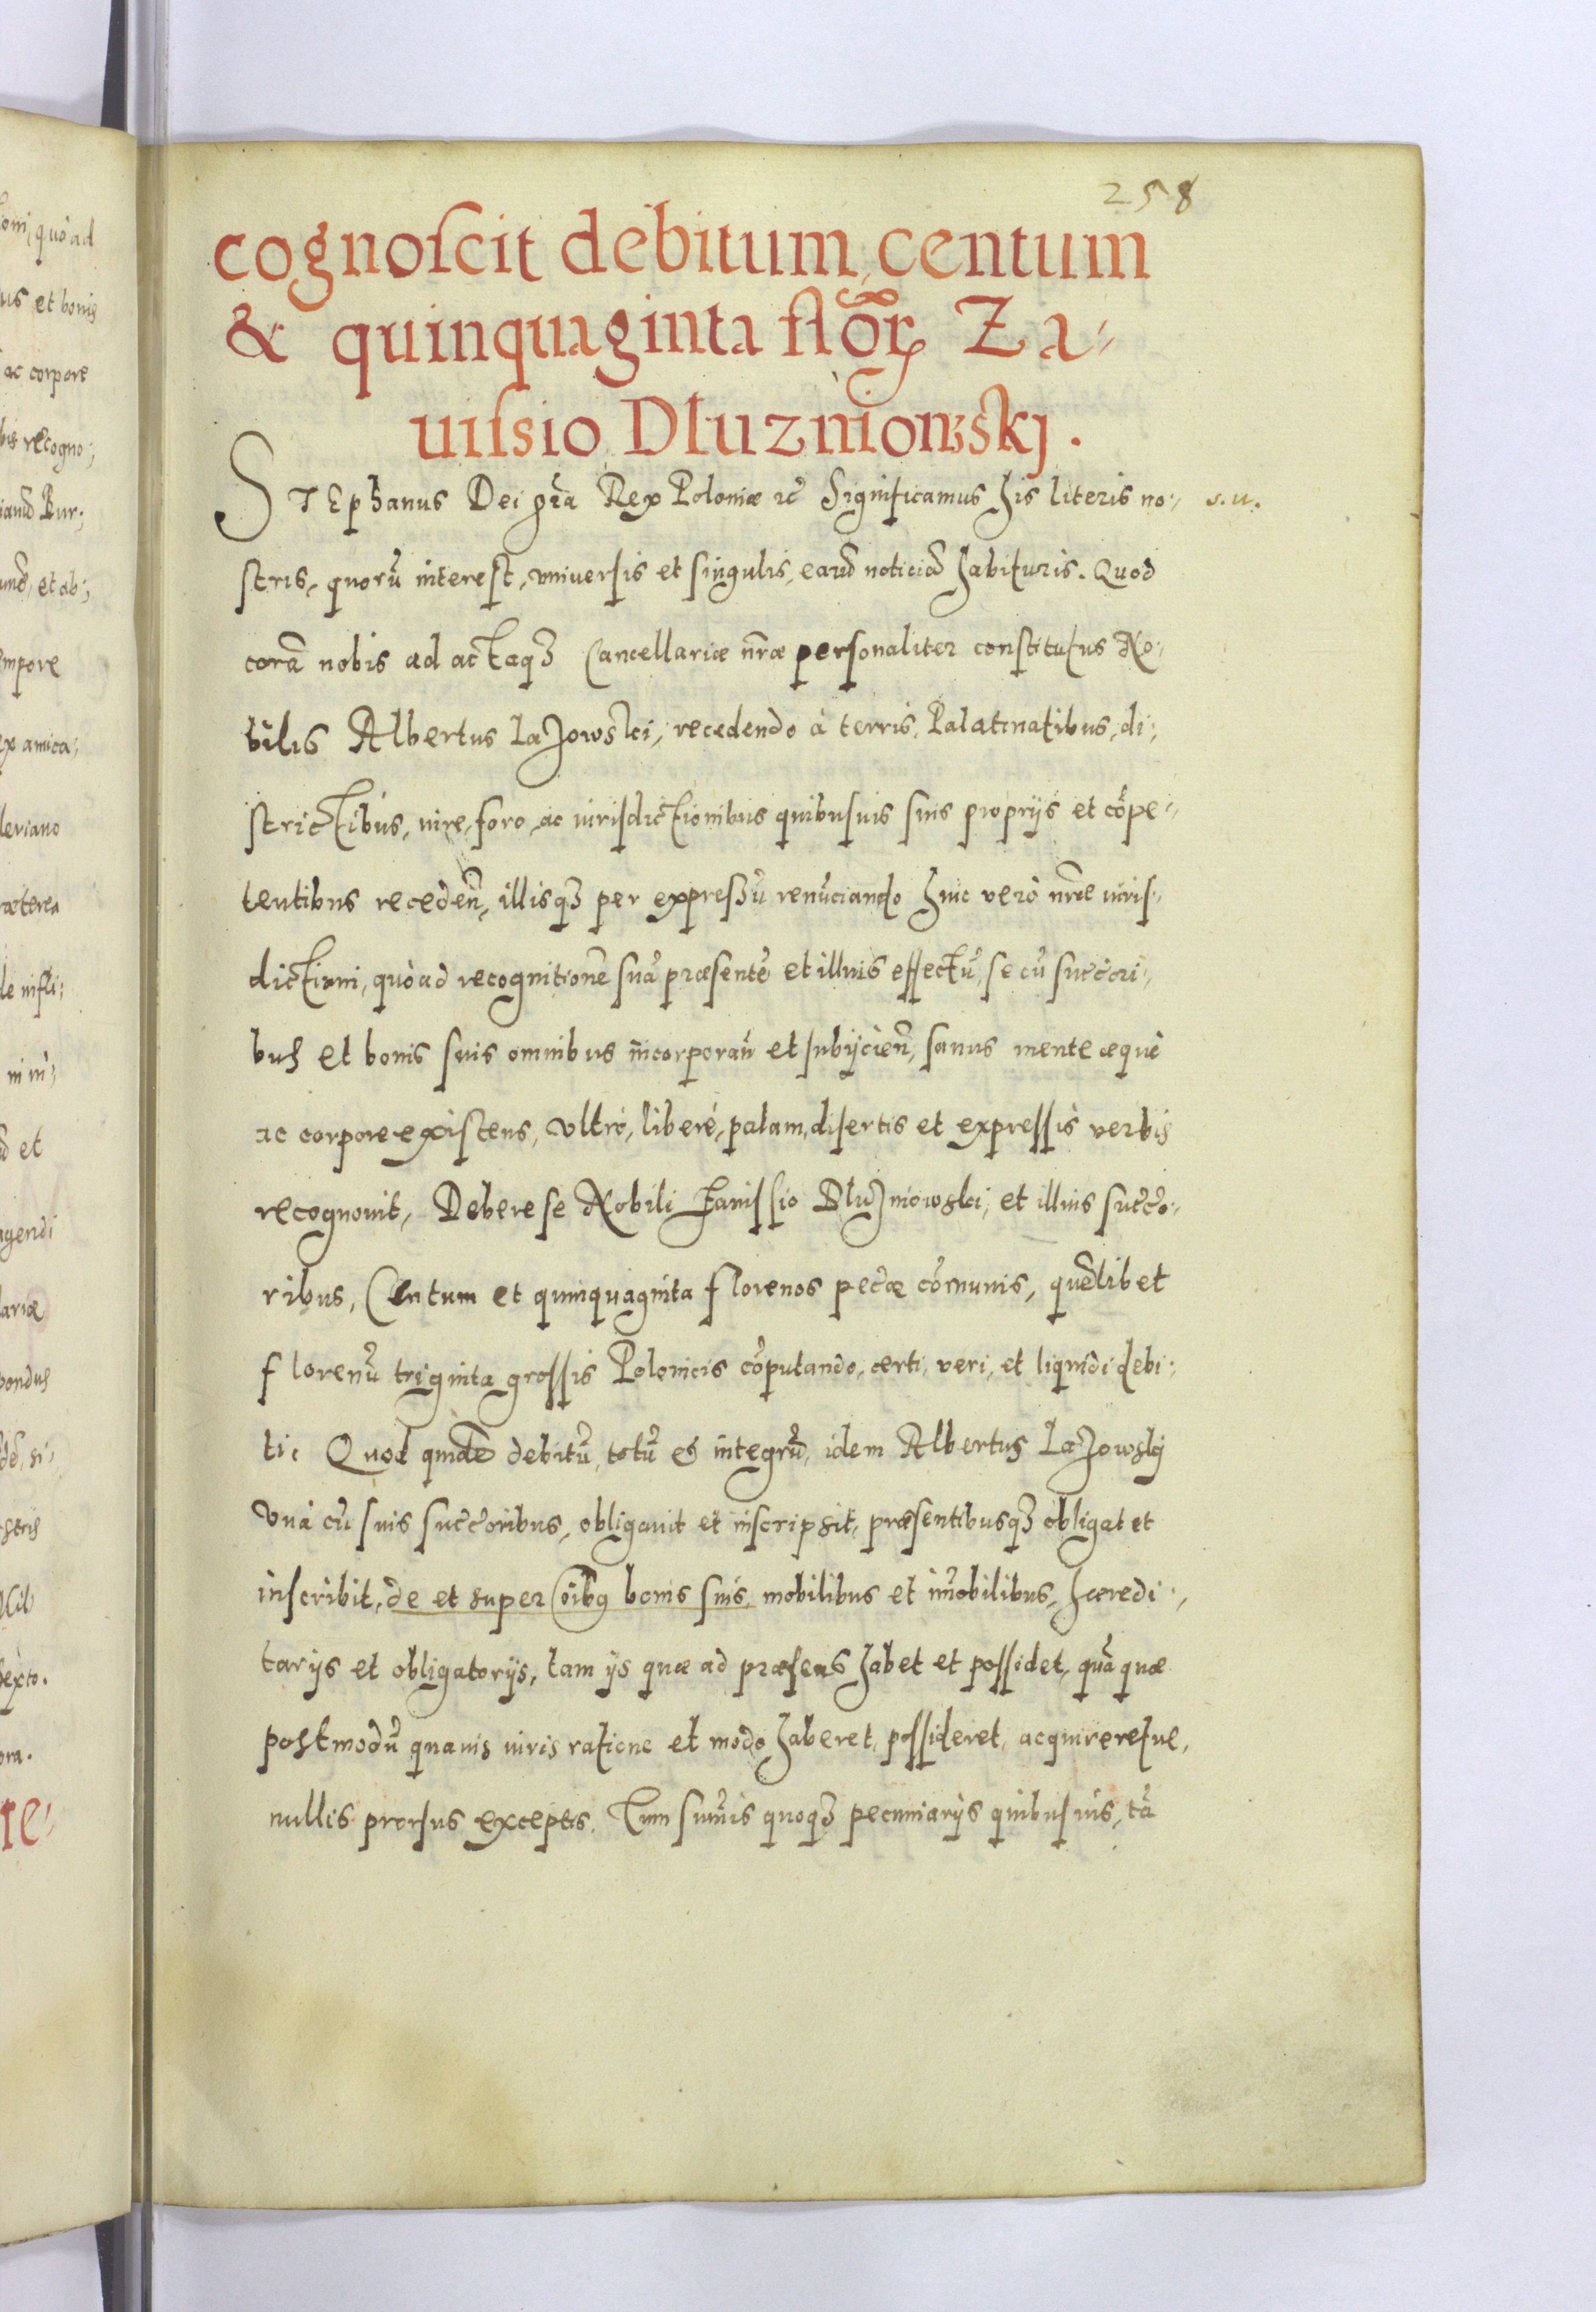 258
cognoscit debitum, centum
& quinquaginta flor̃ Za-
uissio Dluzniowskj.
STEphanus Dei gr̃a Rex Poloniæ rc̃ Significamus his literis no- s.u.
stris, quorũ interest, vniuersis et singulis, earũ noticiã habituris. Quod
corã nobis ad actaq3 Cancellariæ nr̃æ personaliter constitutus No-
bilis Albertus Lazowski, recedendo à terris, Palatinatibus, di-
strictibus, iure, foro, ac iurisdictionibus quibusuis suis proprijs et cõpe-
tentibus receden̄, illisq3 per expressũ renũciando huic verò nr̃æ iuris-
dictioni, quò ad recognitionẽ suã præsentẽ et illius effectũ, se cũ succ̃ori-
bus et bonis suis omnibus incorporan̄ et subijcien̄, sanus mente æquè
ac corpore existens, vltrò, liberè, palam, disertis et expressis verbis
recognouit, Debere se Nobili Zauissio Dluzniowski, et illius succ̃o-
ribus, Centum et quinquaginta florenos pec̃æ cõmunis, quẽlibet
florenũ triginta grossis Polonicis cõputando, certi, veri, et liquidi debi-
ti: Quod quidẽ debitũ, totũ & integrũ, idem Albertus Lazowskj
vnà cũ suis succ̃oribus, obligauit et inscripsit, præsentibusq3 obligat et
inscribit, de et super oib9 bonis suis, mobilibus et im̃obilibus, hæredi-
tarijs et obligatorijs, tam ijs quæ ad præsens habet et possidet, quã quæ
postmodũ quauis iuris ratione et modo haberet, possideret, acquireretue,
nullis prorsus exceptis. Tum sum̃is quoq3 pecuniarijs quibusuis, tã